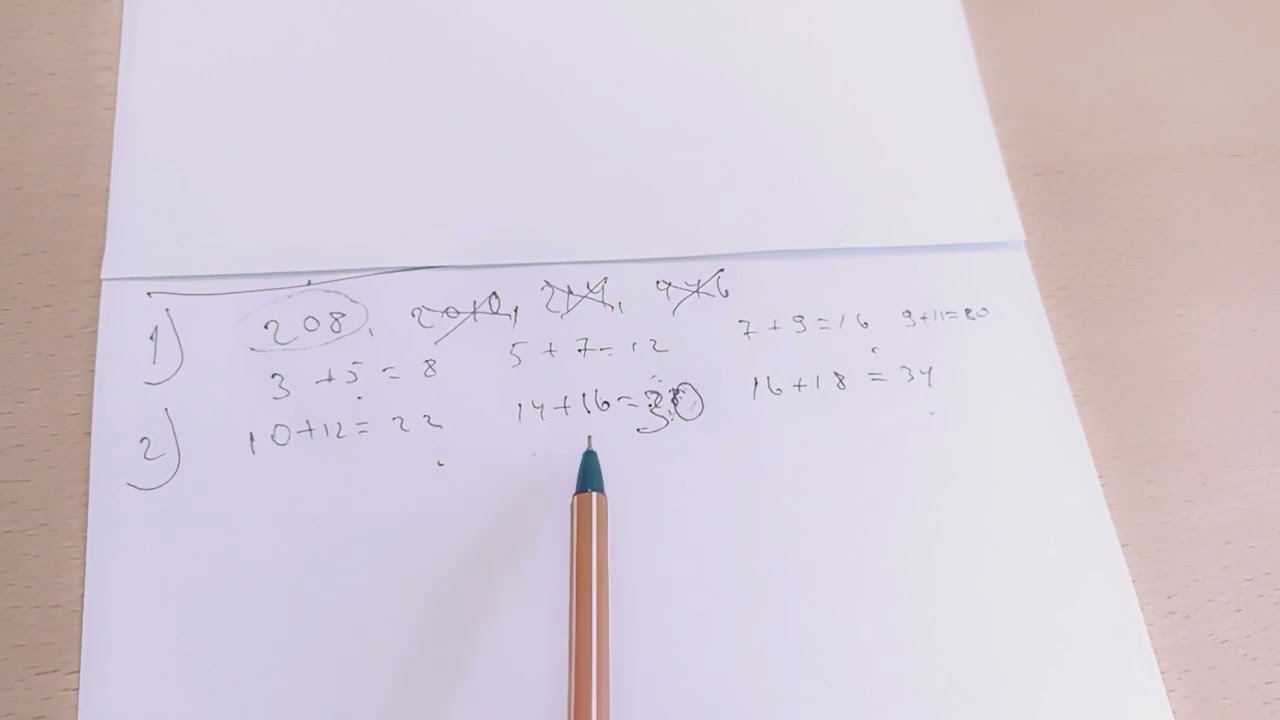 1) 208, 2010, 214, 446
3 + 5 = 8 5 + 7 = 12 7 + 9 = 16 9+11=20
2) 10+12= 22 14+16=30 16+18 = 34